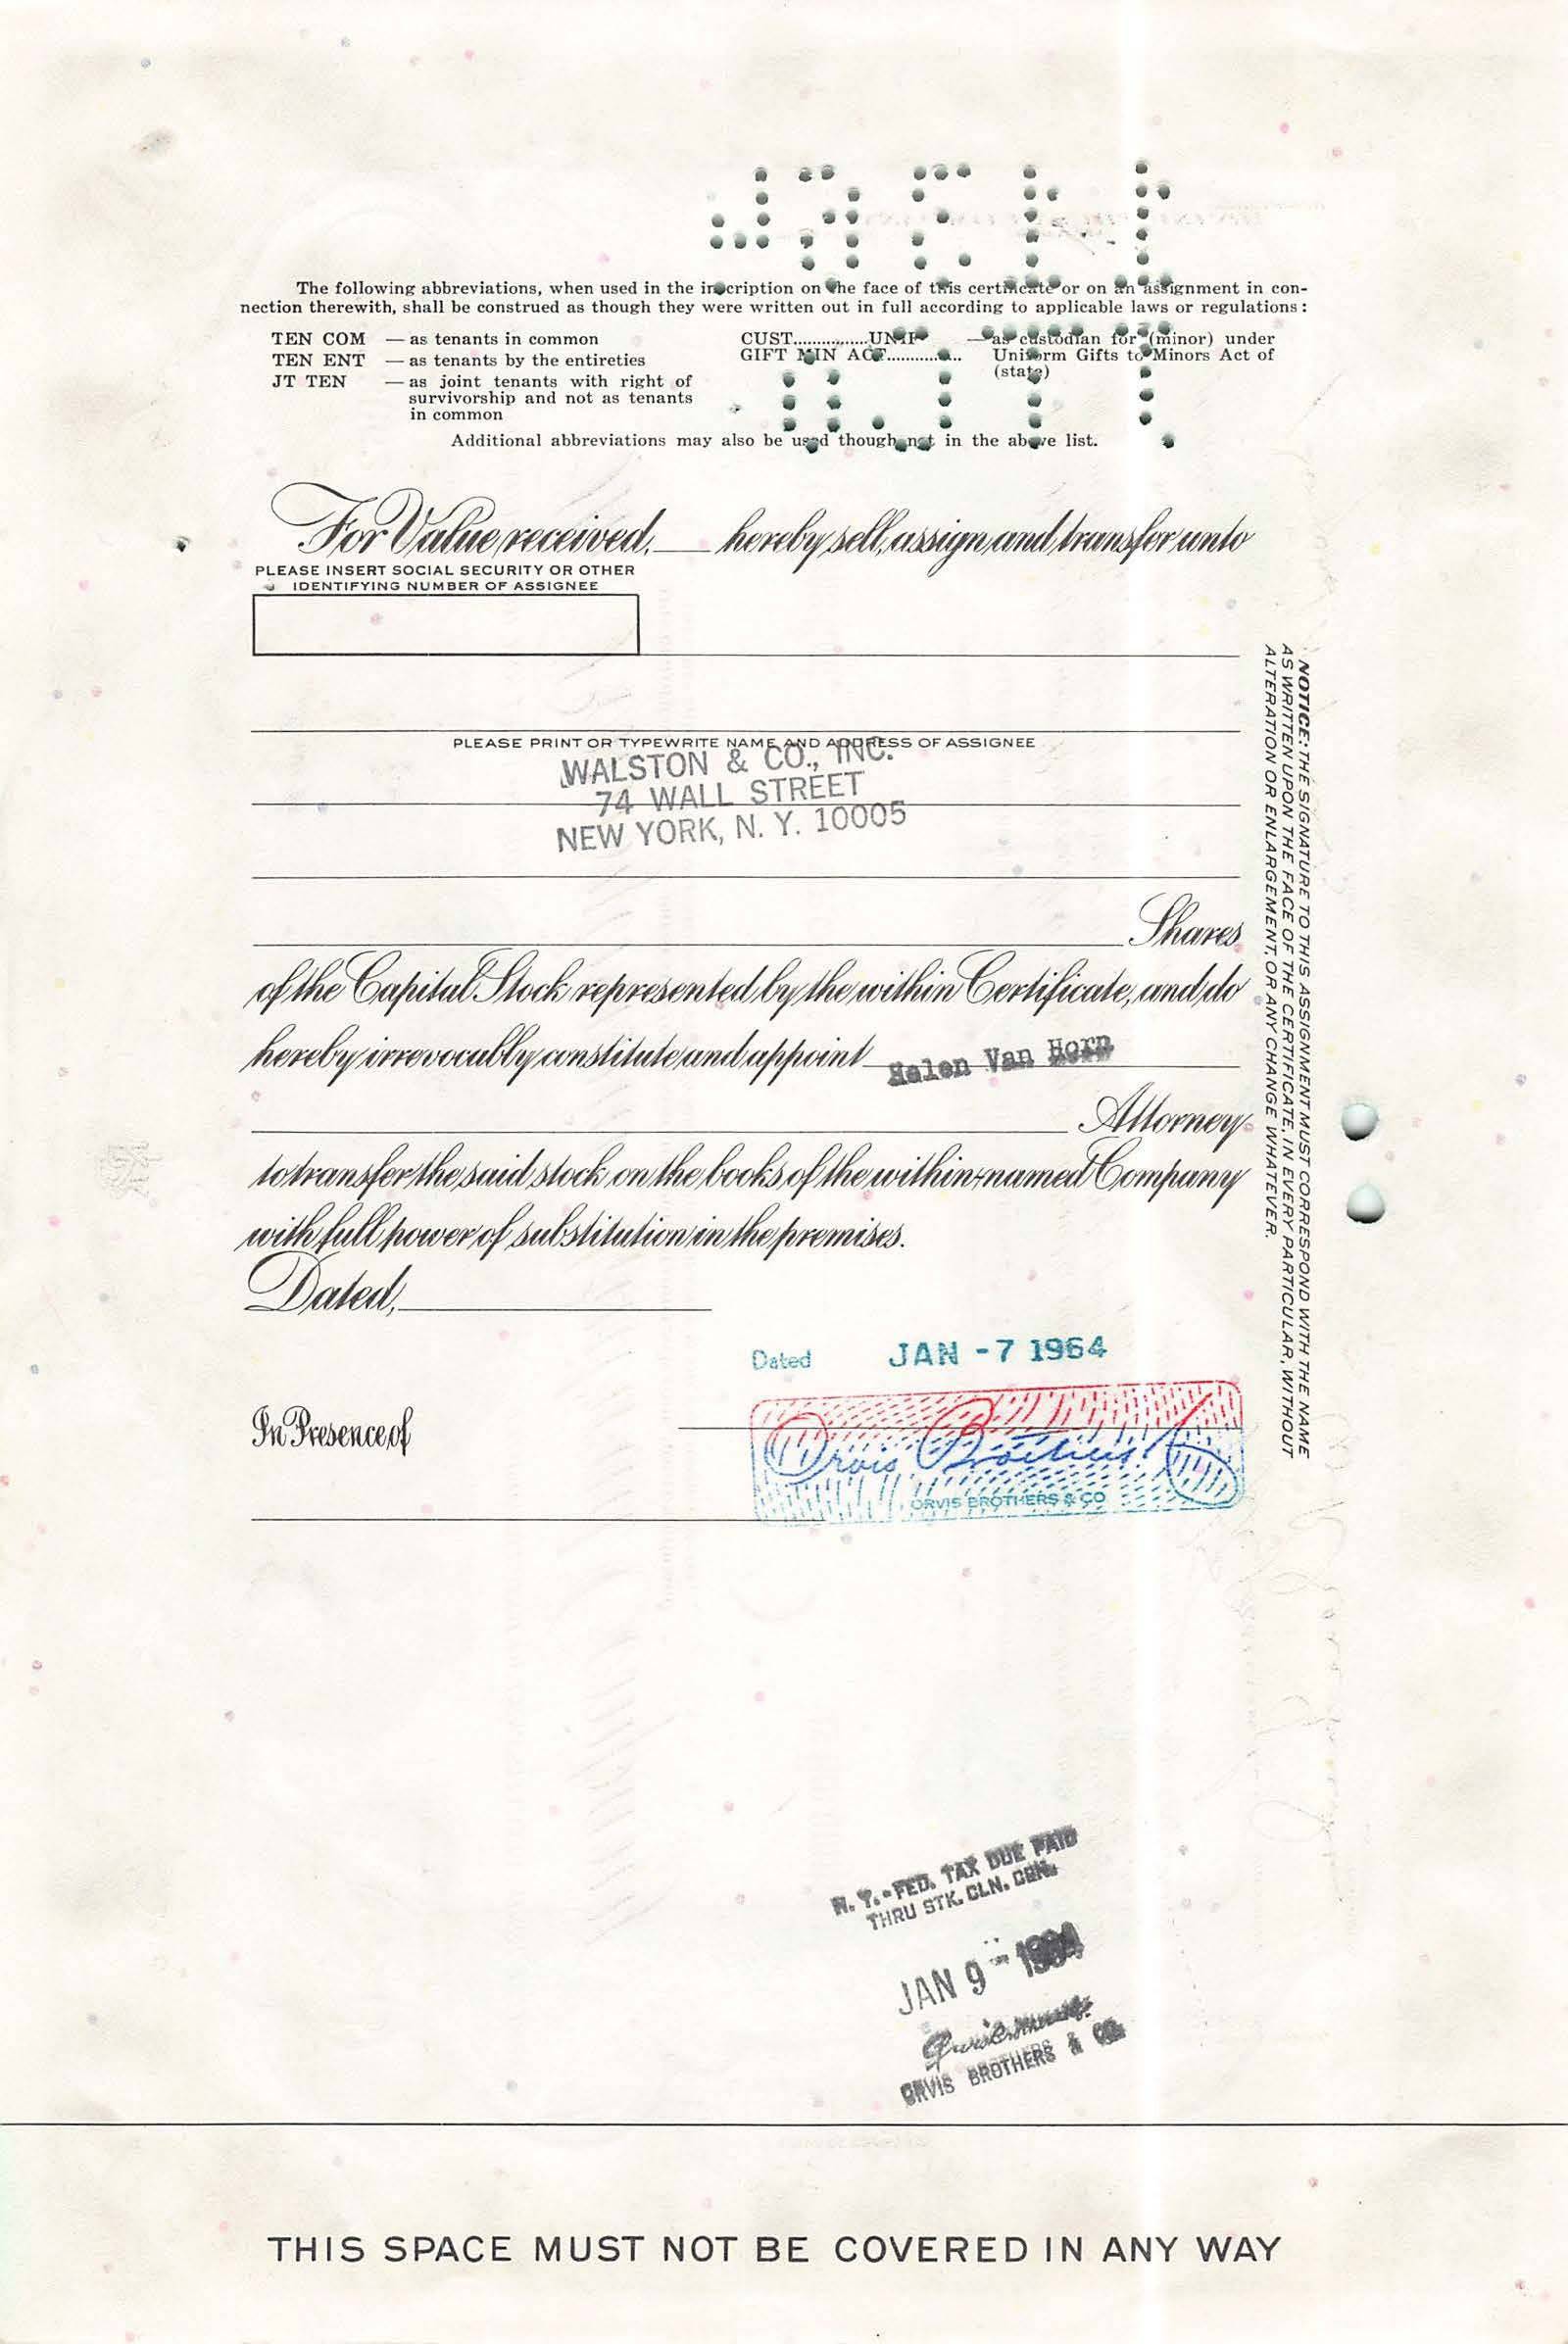 The following abbreviations, when used in the inscription on the face of this certificate or on an assignment in con-
nection therewith, shall be construed as though they were written out in full according to applicable laws or regulations:
TEN COM — as tenants in common
TEN ENT — as tenants by the entireties
JT TEN — as joint tenants with right of
survivorship and not as tenants
in common
CUST................UNIF — as custodian for (minor) under
GIFT MIN ACT.............. Uniform Gifts to Minors Act of
(state)
Additional abbreviations may also be used though not in the above list.
For Value received, ____ hereby sell, assign and transfer unto
PLEASE INSERT SOCIAL SECURITY OR OTHER
IDENTIFYING NUMBER OF ASSIGNEE
PLEASE PRINT OR TYPEWRITE NAME AND ADDRESS OF ASSIGNEE
WALSTON & CO., INC.
74 WALL STREET
NEW YORK, N. Y. 10005
Shares
of the Capital Stock represented by the within Certificate, and do
hereby irrevocably constitute and appoint Helen Van Horn
Attorney
to transfer the said stock on the books of the within-named Company
with full power of substitution in the premises.
Dated,
Dated JAN -7 1964
In Presence of
Orvis Brothers
ORVIS BROTHERS & CO
NOTICE: THE SIGNATURE TO THIS ASSIGNMENT MUST CORRESPOND WITH THE NAME
AS WRITTEN UPON THE FACE OF THE CERTIFICATE, IN EVERY PARTICULAR, WITHOUT
ALTERATION OR ENLARGEMENT, OR ANY CHANGE WHATEVER.
N. Y. - FED. TAX DUE PAID
THRU STK. CLN. CEN.
JAN 9 - 1964
ORVIS BROTHERS & CO.
THIS SPACE MUST NOT BE COVERED IN ANY WAY